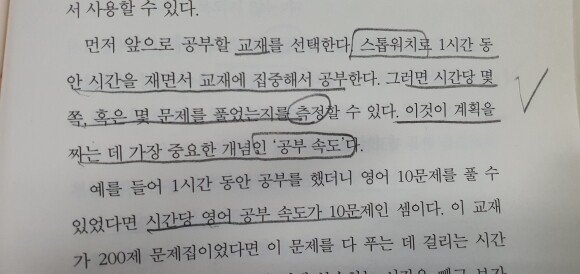 서 사용할 수 있다.
먼저 앞으로 공부할 교재를 선택한다. 스톱워치로 1시간 동
안 시간을 재면서 교재에 집중해서 공부한다. 그러면 시간당 몇
쪽, 혹은 몇 문제를 풀었는지를 측정할 수 있다. 이것이 계획을
짜는 데 가장 중요한 개념인 '공부 속도'다.
예를 들어 1시간 동안 공부를 했더니 영어 10문제를 풀 수
있었다면 시간당 영어 공부 속도가 10문제인 셈이다. 이 교재
가 200제 문제집이었다면 이 문제를 다 푸는 데 걸리는 시간